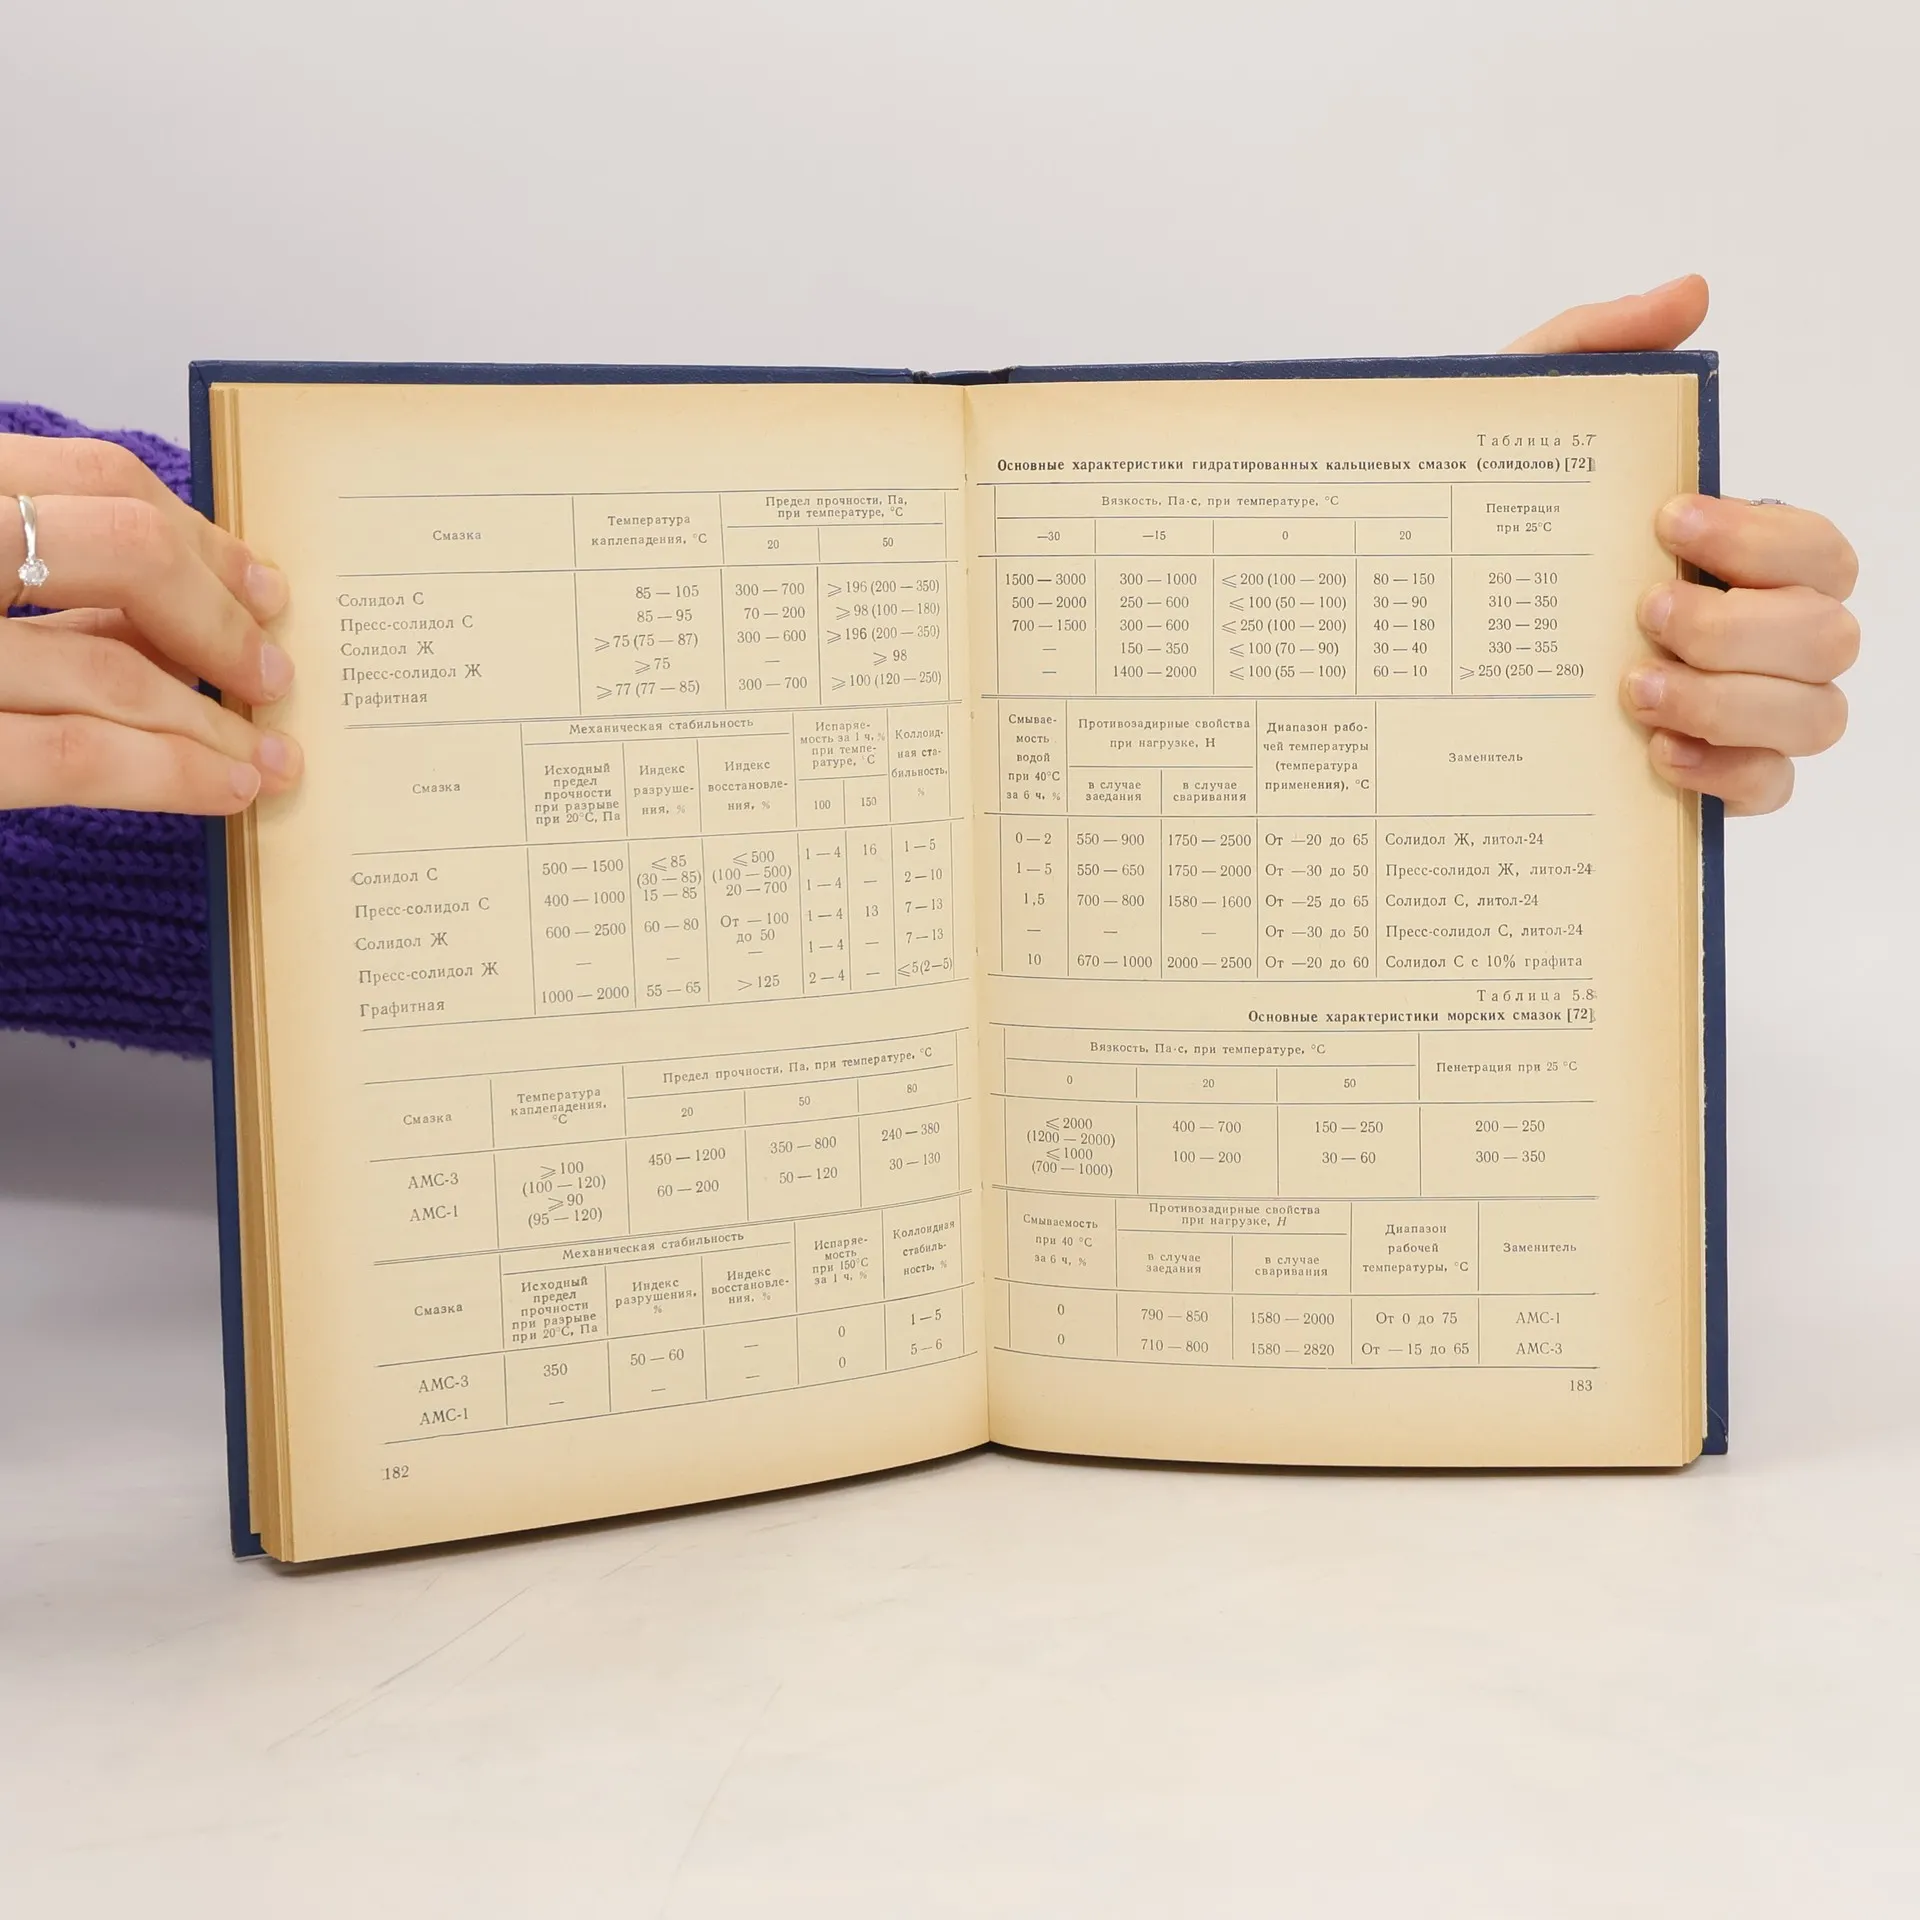 Смазка | Температура каплепадения, °С | Предел прочности, Па, при температуре, °С
20 | 50
Солидол С | 85 — 105 | 300 — 700 | ⩾ 196 (200 — 350)
Пресс-солидол С | 85 — 95 | 70 — 200 | ⩾ 98 (100 — 180)
Солидол Ж | ⩾ 75 (75 — 87) | 300 — 600 | ⩾ 196 (200 — 350)
Пресс-солидол Ж | ⩾ 75 | — | ⩾ 98
Графитная | ⩾ 77 (77 — 85) | 300 — 700 | ⩾ 100 (120 — 250)
Смазка | Механическая стабильность | Испаряемость за 1 ч, % при температуре, °С | Коллоидная стабильность, %
Исходный предел прочности при разрыве при 20°С, Па | Индекс разрушения, % | Индекс восстановления, % | 100 | 150
Солидол С | 500 — 1500 | ⩽ 85 (30 — 85) | ⩽ 500 (100 — 500) | 1 — 4 | 16 | 1 — 5
Пресс-солидол С | 400 — 1000 | 15 — 85 | 20 — 700 | 1 — 4 | — | 2 — 10
Солидол Ж | 600 — 2500 | 60 — 80 | От — 100 до 50 | 1 — 4 | 13 | 7 — 13
Пресс-солидол Ж | — | — | — | 1 — 4 | — | 7 — 13
Графитная | 1000 — 2000 | 55 — 65 | > 125 | 2 — 4 | — | ⩽ 5 (2 — 5)
Смазка | Температура каплепадения, °С | Предел прочности, Па, при температуре, °С
20 | 50 | 80
АМС-3 | ⩾ 100 (100 — 120) | 450 — 1200 | 350 — 800 | 240 — 380
АМС-1 | ⩾ 90 (95 — 120) | 60 — 200 | 50 — 120 | 30 — 130
Смазка | Механическая стабильность | Испаряемость при 150°С за 1 ч, % | Коллоидная стабильность, %
Исходный предел прочности при разрыве при 20°С, Па | Индекс разрушения, % | Индекс восстановления, %
АМС-3 | 350 | 50 — 60 | — | 0 | 1 — 5
АМС-1 | — | — | — | 0 | 5 — 6
182
Таблица 5.7
Основные характеристики гидратированных кальциевых смазок (солидолов) [72]
Вязкость, Па·с, при температуре, °С | Пенетрация при 25°С
—30 | —15 | 0 | 20
1500 — 3000 | 300 — 1000 | ⩽ 200 (100 — 200) | 80 — 150 | 260 — 310
500 — 2000 | 250 — 600 | ⩽ 100 (50 — 100) | 30 — 90 | 310 — 350
700 — 1500 | 300 — 600 | ⩽ 250 (100 — 200) | 40 — 180 | 230 — 290
— | 150 — 350 | ⩽ 100 (70 — 90) | 30 — 40 | 330 — 355
— | 1400 — 2000 | ⩽ 100 (55 — 100) | 60 — 10 | ⩾ 250 (250 — 280)
Смываемость водой при 40°С за 6 ч, % | Противозадирные свойства при нагрузке, Н | Диапазон рабочей температуры (температура применения), °С | Заменитель
в случае заедания | в случае сваривания
0 — 2 | 550 — 900 | 1750 — 2500 | От —20 до 65 | Солидол Ж, литол-24
1 — 5 | 550 — 650 | 1750 — 2000 | От —30 до 50 | Пресс-солидол Ж, литол-24
1,5 | 700 — 800 | 1580 — 1600 | От —25 до 65 | Солидол С, литол-24
— | — | — | От —30 до 50 | Пресс-солидол С, литол-24
10 | 670 — 1000 | 2000 — 2500 | От —20 до 60 | Солидол С с 10% графита
Таблица 5.8
Основные характеристики морских смазок [72]
Вязкость, Па·с, при температуре, °С | Пенетрация при 25 °С
0 | 20 | 50
⩽ 2000 (1200 — 2000) | 400 — 700 | 150 — 250 | 200 — 250
⩽ 1000 (700 — 1000) | 100 — 200 | 30 — 60 | 300 — 350
Смываемость при 40 °С за 6 ч, % | Противозадирные свойства при нагрузке, Н | Диапазон рабочей температуры, °С | Заменитель
в случае заедания | в случае сваривания
0 | 790 — 850 | 1580 — 2000 | От 0 до 75 | АМС-1
0 | 710 — 800 | 1580 — 2820 | От — 15 до 65 | АМС-3
183